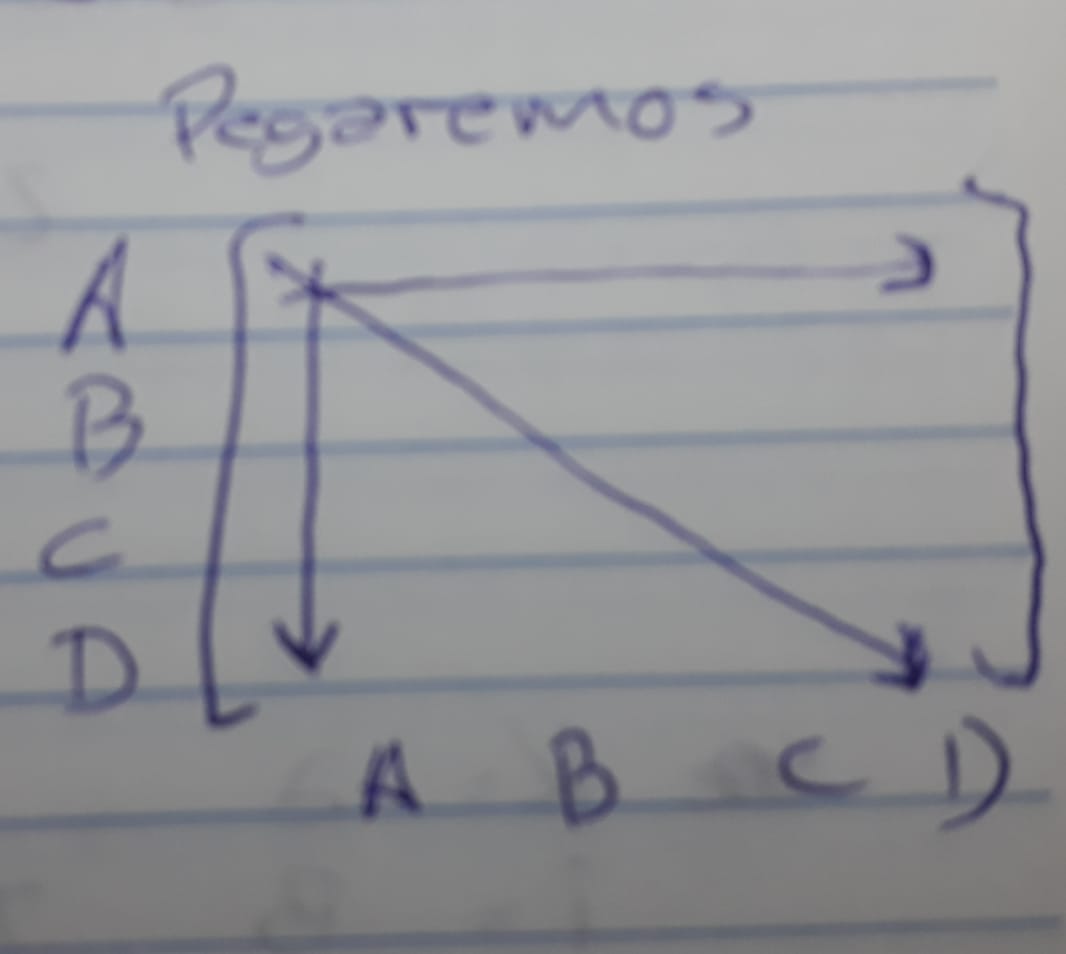 Pegaremos
A
B
C
D
A B C D